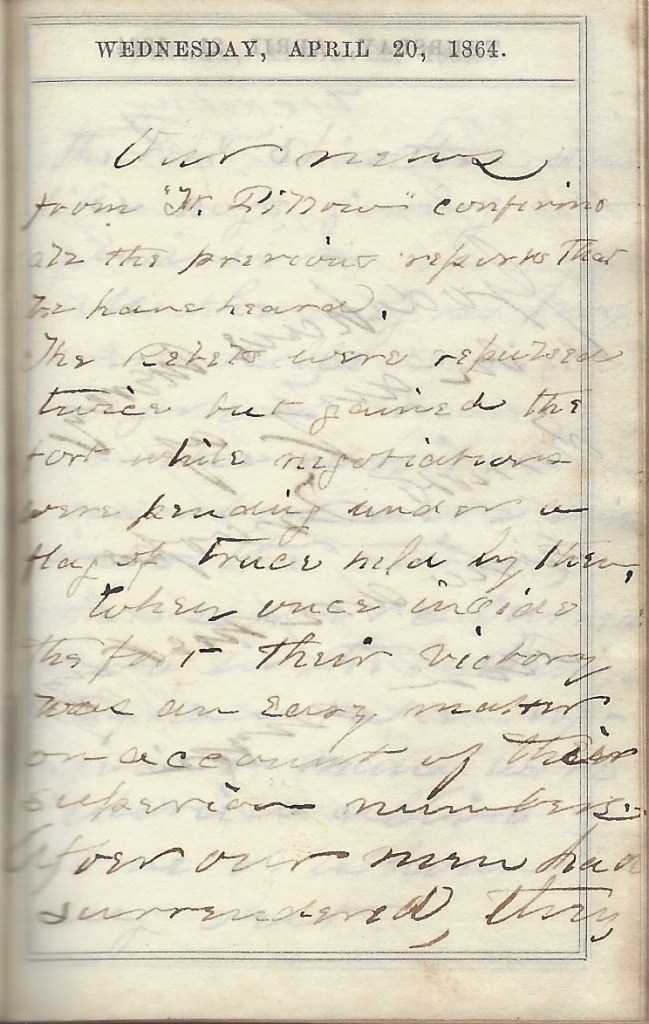 WEDNESDAY, APRIL 20, 1864.
Our news
from "Ft. Pillow" confirms
all the previous reports that
we have heard.
The Rebels were repulsed
twice but gained the
fort while negotiations
were pending under a
flag of truce held by them,
When once inside
the fort their victory
was an easy matter
on account of their
superior numbers.
After our men had
surrendered, they